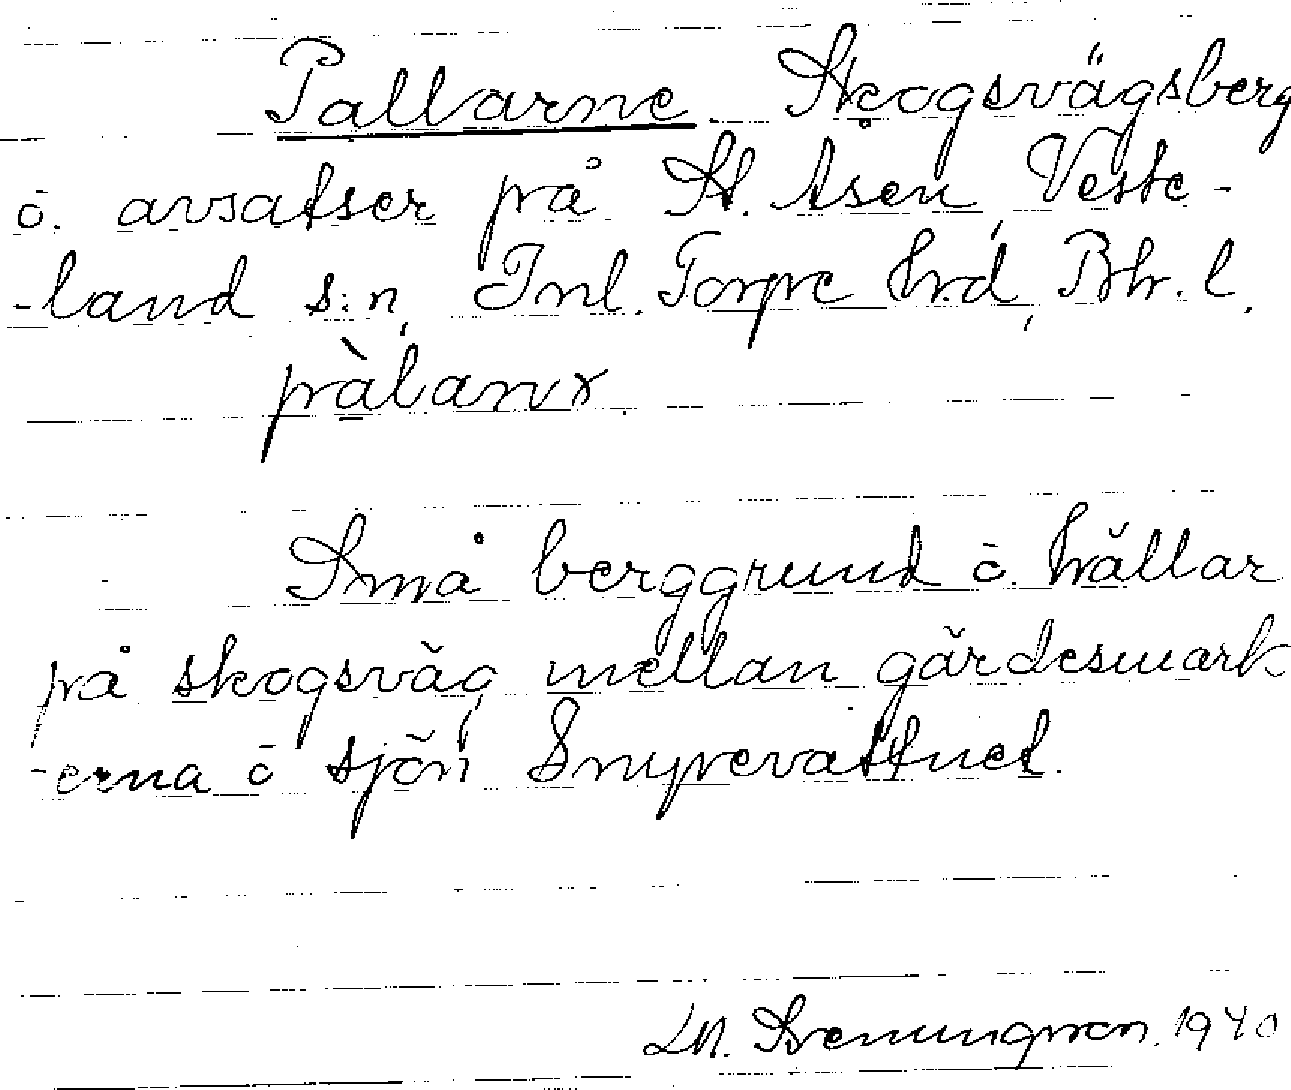 Pallarne. Skogsvägsberg
o. avsatser på St. Åsen, Veste-
-land s:n, Inl. Torpe hrd, Bh. l.
pàlanɤ
Små berggrund o. hällar
på skogsväg mellan gärdesmark
-erna o sjön Snypevattnet.
LM. Svenungsson. 1940